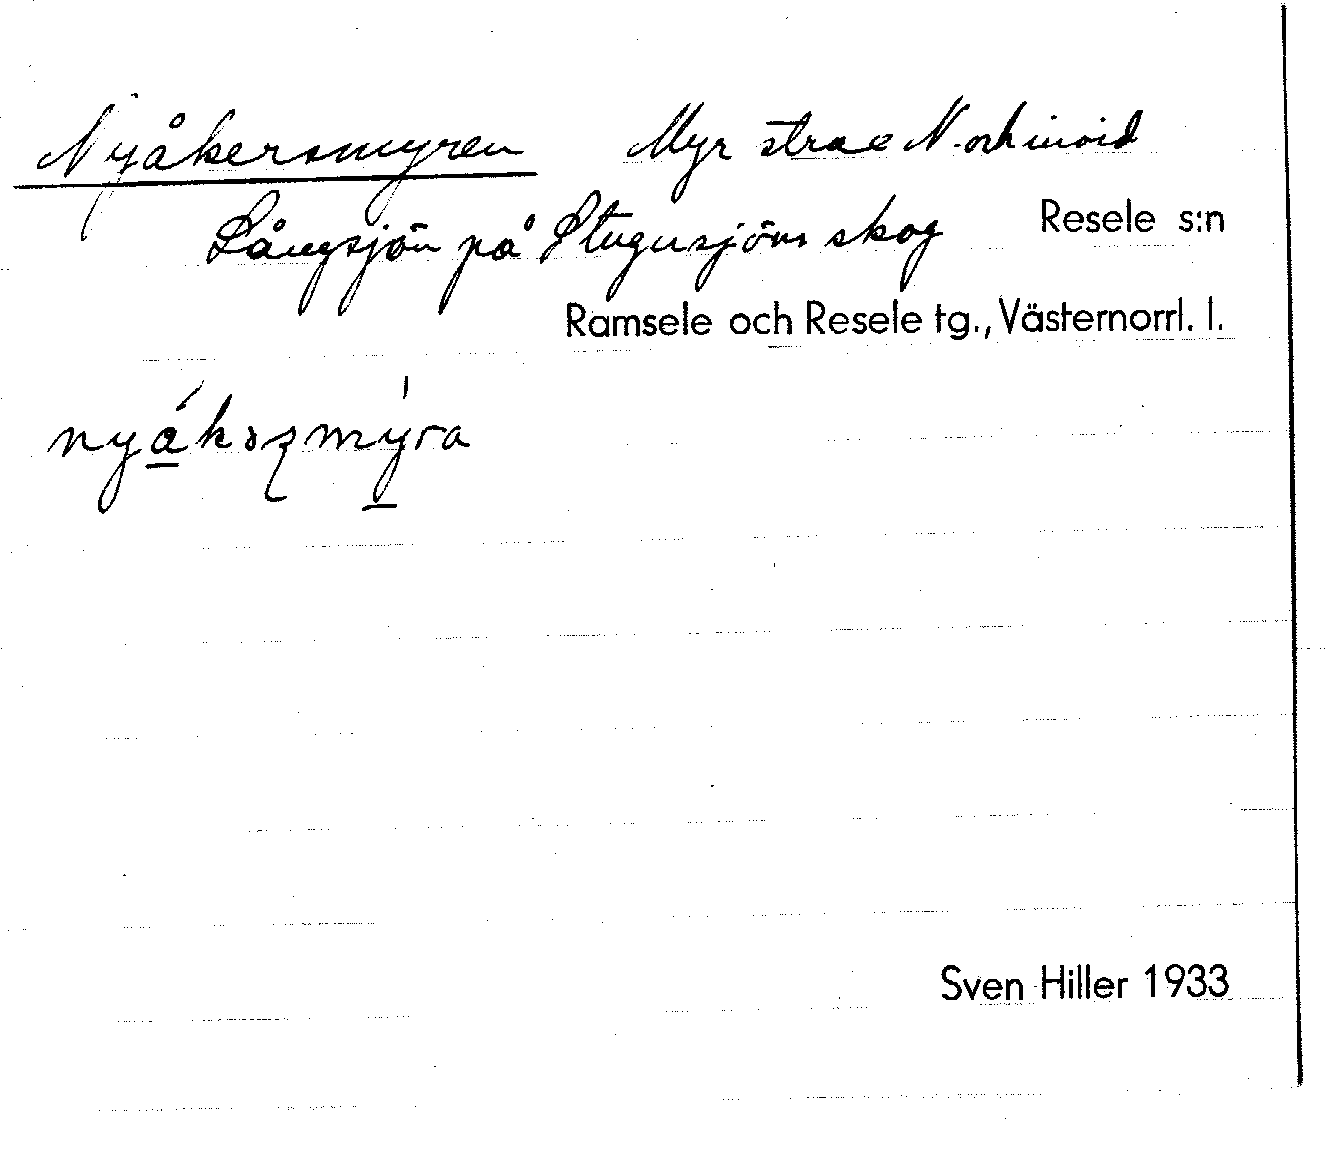 Nyåkersmyren Myr strax N. och invid
Långsjön på Stugusjöns skog Resele s:n
Ramsele och Resele tg., Västernorrl. l.
nyákəʂmýra
Sven Hiller 1933